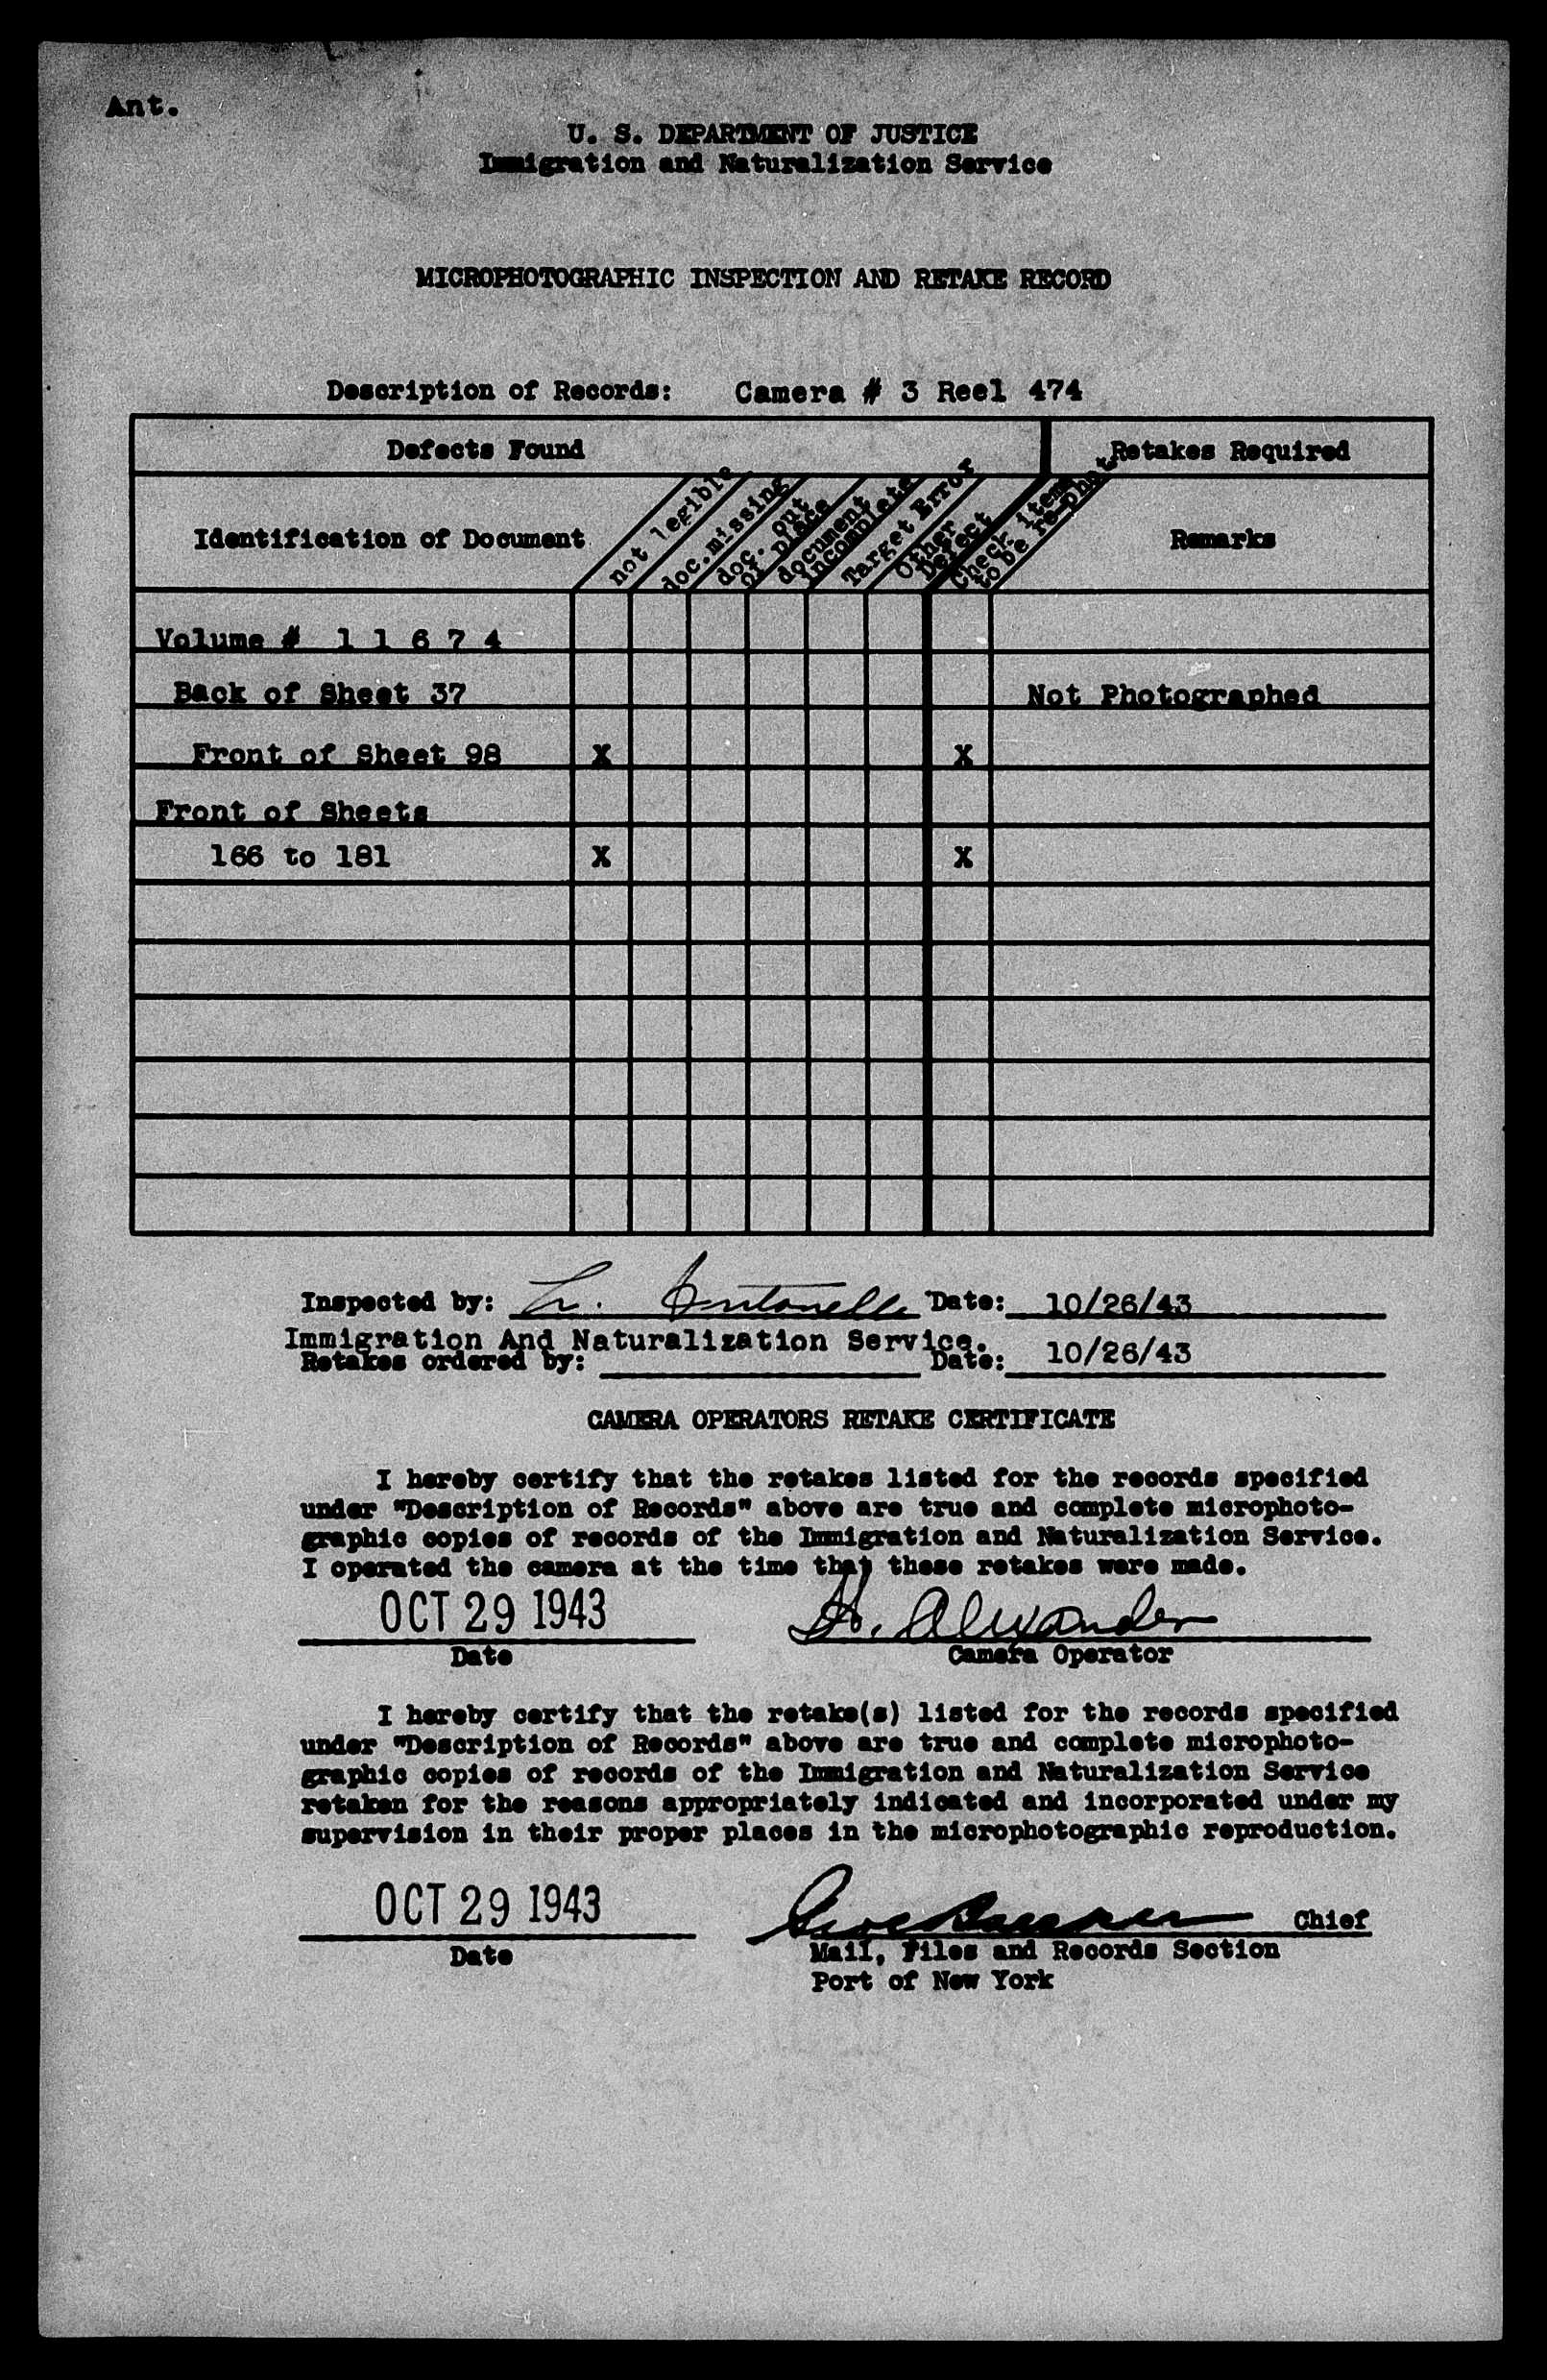 Ant.
U. S. DEPARTMENT OF JUSTICE
Immigration and Naturalization Service
MICROPHOTOGRAPHIC INSPECTION AND RETAKE RECORD
Description of Records: Camera # 3 Reel 474
Defects Found Retakes Required
Identification of Document not legible doc.missing doc. out of place document incomplete Target Error Other Defect Check item to be re-phot Remarks
Volume # 1 1 6 7 4
Back of Sheet 37 Not Photographed
Front of Sheet 98 X X
Front of Sheets
166 to 181 X X
Inspected by: L. Antonelli Date: 10/26/43
Immigration And Naturalization Service.
Retakes ordered by: Date: 10/26/43
CAMERA OPERATORS RETAKE CERTIFICATE
I hereby certify that the retakes listed for the records specified
under "Description of Records" above are true and complete microphoto-
graphic copies of records of the Immigration and Naturalization Service.
I operated the camera at the time that these retakes were made.
OCT 29 1943 H. Alexander
Date Camera Operator
I hereby certify that the retake(s) listed for the records specified
under "Description of Records" above are true and complete microphoto-
graphic copies of records of the Immigration and Naturalization Service
retaken for the reasons appropriately indicated and incorporated under my
supervision in their proper places in the microphotographic reproduction.
OCT 29 1943 Chief
Date Mail, Files and Records Section
Port of New York